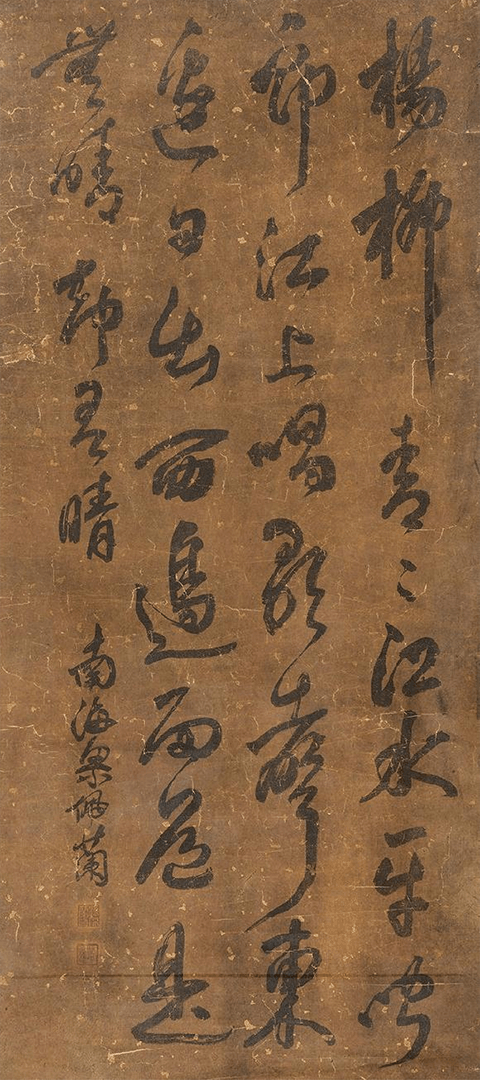 楊柳青〻江水平聞
郎江上唱歌聲東
邊日出西邊雨道是
無晴却有晴 南海梁佩蘭